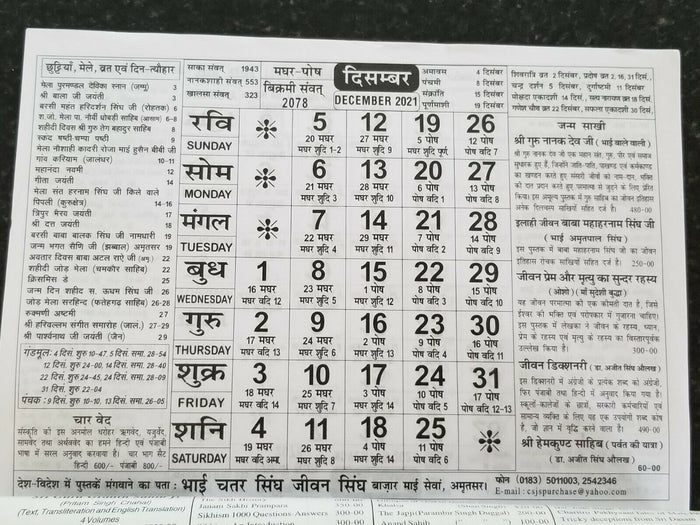 छुट्टियाँ, मेले, व्रत एवं दिन-त्यौहार
मेला पुरमण्डल देविका स्नान (जम्मू) 3
श्री बाला जी जयंती 3
बरसी महत हरिदर्शन सिंह जी (रोहतक) 6
श.जो. मेला पा. नौवीं धोबड़ी साहिब (आसाम) 6-8
शहीदी दिवस श्री गुरु तेग बहादुर साहिब 8
स्कंद षष्ठी-चम्पा षष्ठी 9
मेला नौशाही कादरी रोजा माई हुसैन बीबी जी
गांव करियाम (जालंधर) 10-11
महानंदा नवमी 12
गीता जयंती 14
मेला संत हरनाम सिंह जी किले वाले
पिपली (कुरुक्षेत्र) 14-16
त्रिपुर भैरव जयंती 17
श्री दत्त जयंती 18
बरसी बाबा बालक सिंह जी नामधारी 19
जन्म भगत सैणि जी (झब्बाल) अमृतसर 19
अवतार दिवस बाबा अटल राऐ जी (अमृ.) 22
शहीदी जोड़ मेला (चमकौर साहिब) 22
क्रिसमिस डे 25
जन्म दिन शहीद स. ऊधम सिंह जी 26
जोड़ मेला सरहिन्द (फतेहगढ़ साहिब) 26-28
रुक्मणी अष्टमी 27
श्री हरिवल्लभ संगीत समारोह (जालं.) 27-29
श्री पार्श्वनाथ जी जयंती (जैन) 29
गंडमूल: 4 दिसं. शुरु 10-47, 5 दिसं. समा. 28-54
12 दिसं. शुरु 24-00, 14 दिसं. समा. 28-40
22 दिसं. शुरु 24-45, 24 दिसं. समा. 28-09
31 दिसं. शुरु 22-04
पंचक : 9 दिसं. शुरु 10-10, 13 दिसं. समा. 26-05
चार वेद
संस्कृति को इस अनमोल धरोहर ऋगवेद, यजुर्वेद,
सामवेद तथा अर्थववेद का हमने हिन्दी एवं पंजाबी
भाषा में सरल अनुवाद करवाया है। चार भाग सैट
हिन्दी 600/- पंजाबी 800/-
साका संवत् 1943
नानकशाही संवत् 553
खालसा संवत् 323
मघर-पोष
बिक्रमी संवत्
2078
दिसम्बर
DECEMBER 2021
अमावस 4 दिसंबर
पंचमी 8 दिसंबर
संक्रांति 15 दिसंबर
पूर्णमाशी 19 दिसंबर
रवि 5 12 19 26
SUNDAY 20 मघर 27 मघर 5 पोष 12 पोष
मघर शुदि 1-2 मघर शुदि 9 मघर शुदि पूर्ण पोष वदि 7
सोम 6 13 20 27
MONDAY 21 मघर 28 मघर 6 पोष 13 पोष
मघर शुदि 3 मघर शुदि 10 पोष वदि 1 पोष वदि 8
मंगल 7 14 21 28
TUESDAY 22 मघर 29 मघर 7 पोष 14 पोष
मघर शुदि 4 मघर शुदि 11 पोष वदि 2 पोष वदि 9
बुध 1 8 15 22 29
WEDNESDAY 16 मघर 23 मघर 1 पोष 8 पोष 15 पोष
मघर वदि 12 मघर शुदि 5 मघर शुदि 12 पोष वदि 3 पोष वदि 10
गुरु 2 9 16 23 30
THURSDAY 17 मघर 24 मघर 2 पोष 9 पोष 16 पोष
मघर वदि 13 मघर शुदि 6 मघर शुदि 13 पोष वदि 4 पोष वदि 11
शुक्र 3 10 17 24 31
FRIDAY 18 मघर 25 मघर 3 पोष 10 पोष 17 पोष
मघर वदि 14 मघर शुदि 7 मघर शुदि 14 पोष वदि 5 पोष वदि 12-13
शनि 4 11 18 25
SATURDAY 19 मघर 26 मघर 4 पोष 11 पोष
मघर वदि अमा. मघर शुदि 8 मघर शुदि 14 पोष वदि 6
शिवरात्रि व्रत 2 दिसंबर, प्रदोष व्रत 2, 16, 31 दिसं.,
चन्द्र दर्शन 5 दिसंबर, दुर्गाष्टमी 11 दिसंबर
मोक्षदा एकादशी 14 दिसं., सत्य नारायण व्रत 18 दिसं.
गणेश चौथ व्रत 22 दिसंबर, सफला एकादशी 30 दिसं.
जन्म साखी
श्री गुरु नानक देव जी (भाई बाले वाली)
480-00
इलाही जीवन बाबा महाहरनाम सिंह जी
(भाई अमृतपाल सिंह)
इस पुस्तक में बाबा महाहरनाम सिंह जी का जीवन
इतिहास रोचक साखियों सहित दर्ज है। 250-00
जीवन प्रेम और मृत्यु का सुन्दर रहस्य
(ओशो) (माँ सुदेशी बुद्धा)
उल्लेख किया है। 300-00
जीवन डिक्शनरी (डा. अजीत सिंह औलख)
इस डिक्शनरी में अंग्रेजी के प्रत्येक शब्द को अंग्रेजी,
फिर पंजाबी तथा हिन्दी में अनुवाद किया गया है।
स्कूलों-कालेजों के छात्रों, सरकारी कर्मचारियों एवं
सामान्य व्यक्ति के लिए यह एक उपयोगी शब्द कोश
है, जो ज्ञान में वृद्धि करने वाला है। 490-00
श्री हेमकुण्ट साहिब (पर्वत की यात्रा)
(डा. अजीत सिंह औलख)
60-00
देश-विदेश में पुस्तकें मंगवाने का पता : भाई चतर सिंह जीवन सिंह बाज़ार माई सेवां, अमृतसर। फोन (0183) 5011003, 2542346
E-mail : csjspurchase@yahoo.com
(Pritam Singh Chahal)
(Text, Transliteration and English Translation)
4 Volumes
Janam Sakhi Prampara
Sikhism 1000 Questions Answer
The Japji (Parambir Singh Duggal)
Anand Sahib